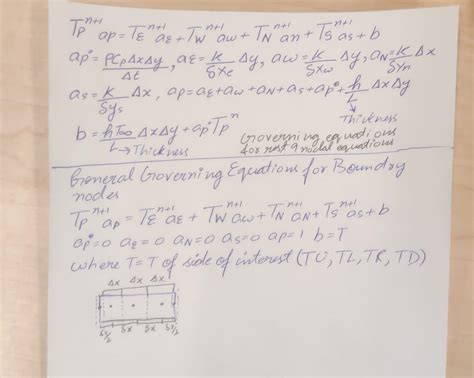 T_P^{n+1} a_P = T_E^{n+1} a_E + T_W^{n+1} a_W + T_N^{n+1} a_N + T_S^{n+1} a_S + b
a_P° = ρC_pΔxΔy/Δt, a_E = k/δx_e Δy, a_W = k/δx_w Δy, a_N = k/δy_n Δx
a_S = k/δy_s Δx, a_P = a_E + a_W + a_N + a_S + a_P° + h/L ΔxΔy
→ Thickness
b = hT∞/L ΔxΔy + a_P° T_P^n
→ Thickness
Governing equations
for rest 9 nodal equations
General Governing Equations for Boundry
nodes
T_P^{n+1} a_P = T_E^{n+1} a_E + T_W^{n+1} a_W + T_N^{n+1} a_N + T_S^{n+1} a_S + b
a_P° = 0 a_E = 0 a_N = 0 a_S = 0 a_P = 1 b = T
where T = T of side of interest (TU, TL, TR, TD)
Δx Δx Δx
δx/2 δx δx δx/2